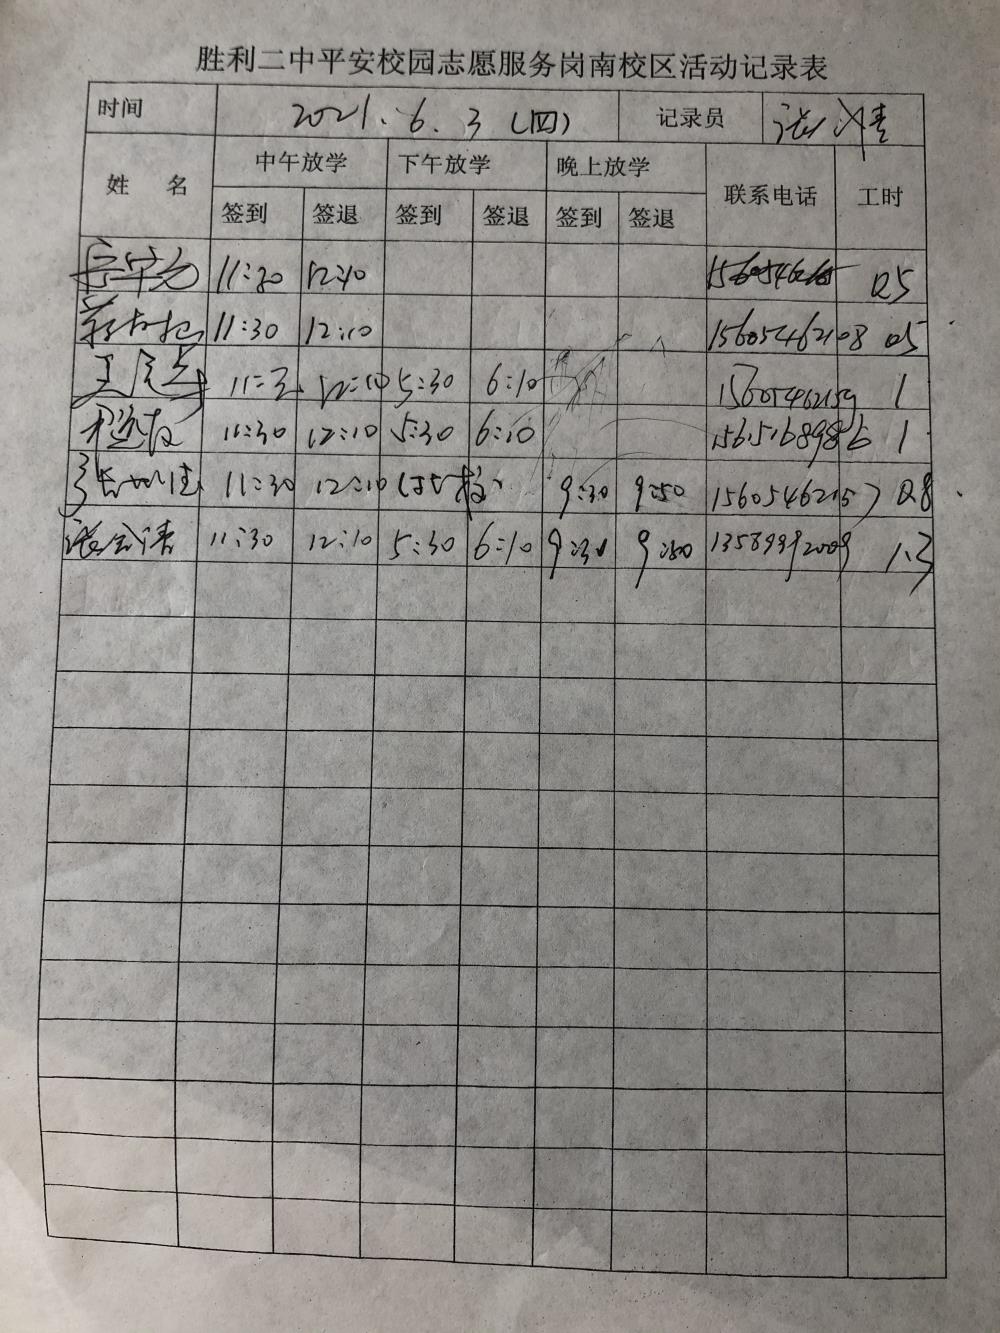 胜利二中平安校园志愿服务岗南校区活动记录表
时间 2021.6.3(四) 记录员
姓 名 中午放学 下午放学 晚上放学 联系电话 工时
签到 签退 签到 签退 签到 签退
11:30 12:10 0.5
11:30 12:10 15605462108 0.5
12:10 5:30 6:10 15605462159 1
11:30 12:10 5:30 6:10 1
11:30 12:10 9:30 9:50 15605462157 0.8
11:30 12:10 5:30 6:10 9:30 9:50 13589992009 1.3